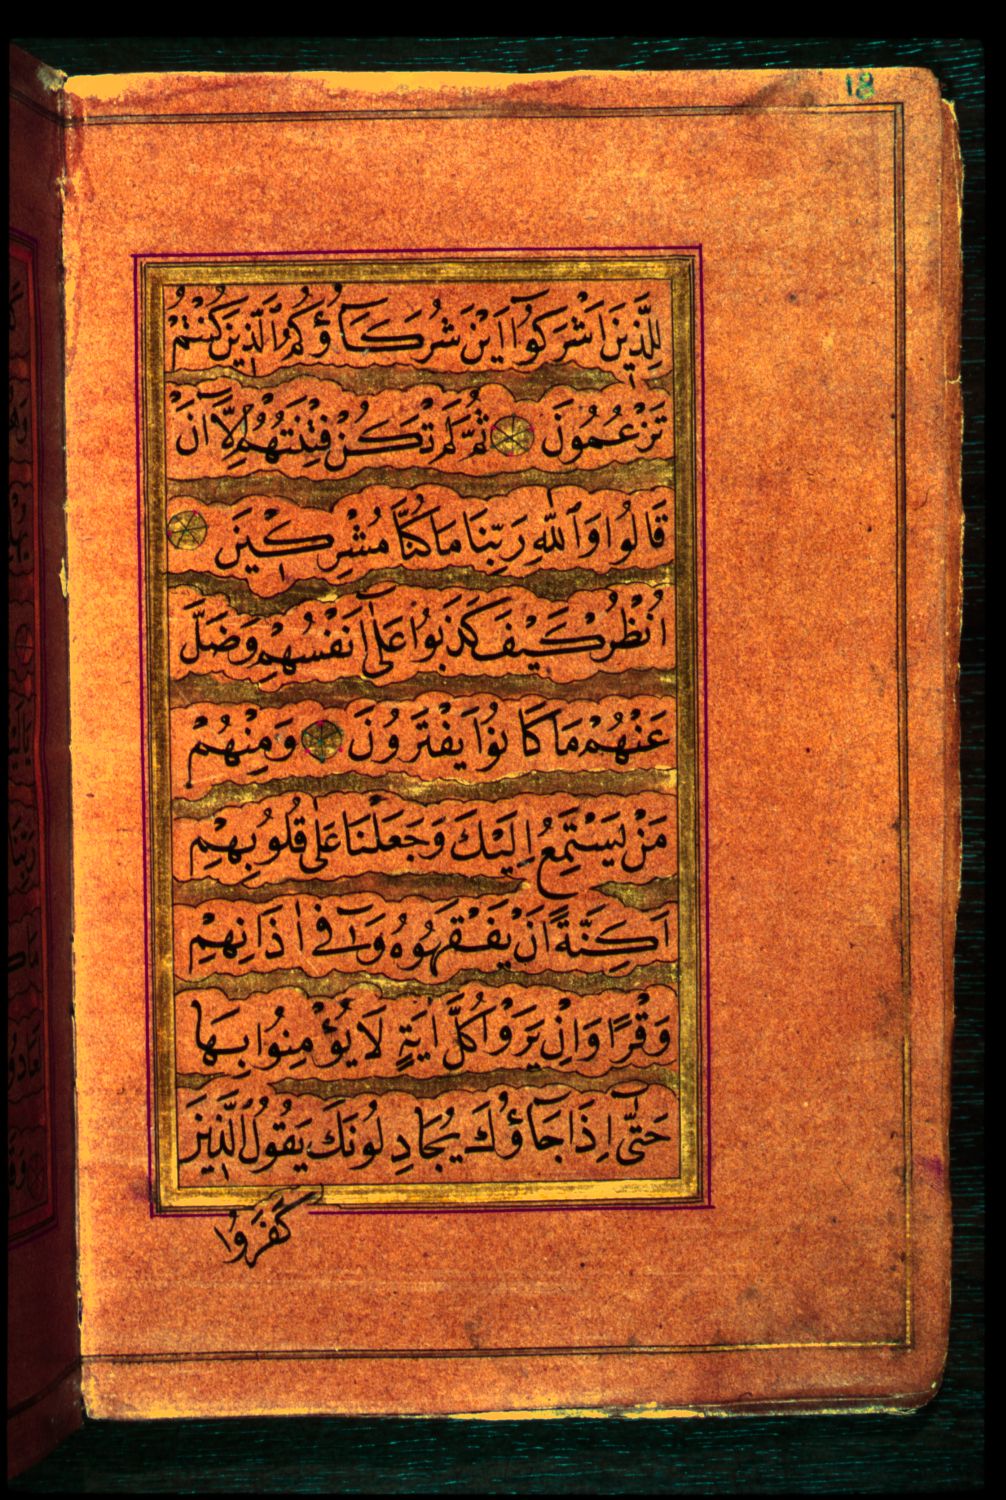 18
لِلَّذِينَ اَشْرَكُوٓا اَيْنَ شُرَكَآؤُكُمُ الَّذِينَ كُنْتُمْ
تَزْعُمُونَ ثُمَّ لَمْ تَكُنْ فِتْنَتُهُمْ اِلَّآ اَنْ
قَالُوا وَاللّٰهِ رَبِّنَا مَا كُنَّا مُشْرِكِينَ
اُنْظُرْ كَيْفَ كَذَبُوا عَلٰٓى اَنْفُسِهِمْ وَضَلَّ
عَنْهُمْ مَا كَانُوا يَفْتَرُونَ وَمِنْهُمْ
مَنْ يَسْتَمِعُ اِلَيْكَ وَجَعَلْنَا عَلٰى قُلُوبِهِمْ
اَكِنَّةً اَنْ يَفْقَهُوهُ وَفٓى اٰذَانِهِمْ
وَقْرًا وَاِنْ يَرَوْا كُلَّ اٰيَةٍ لَا يُؤْمِنُوا بِهَا
حَتّٰٓى اِذَا جَآؤُكَ يُجَادِلُونَكَ يَقُولُ الَّذِينَ
كَفَرُوا